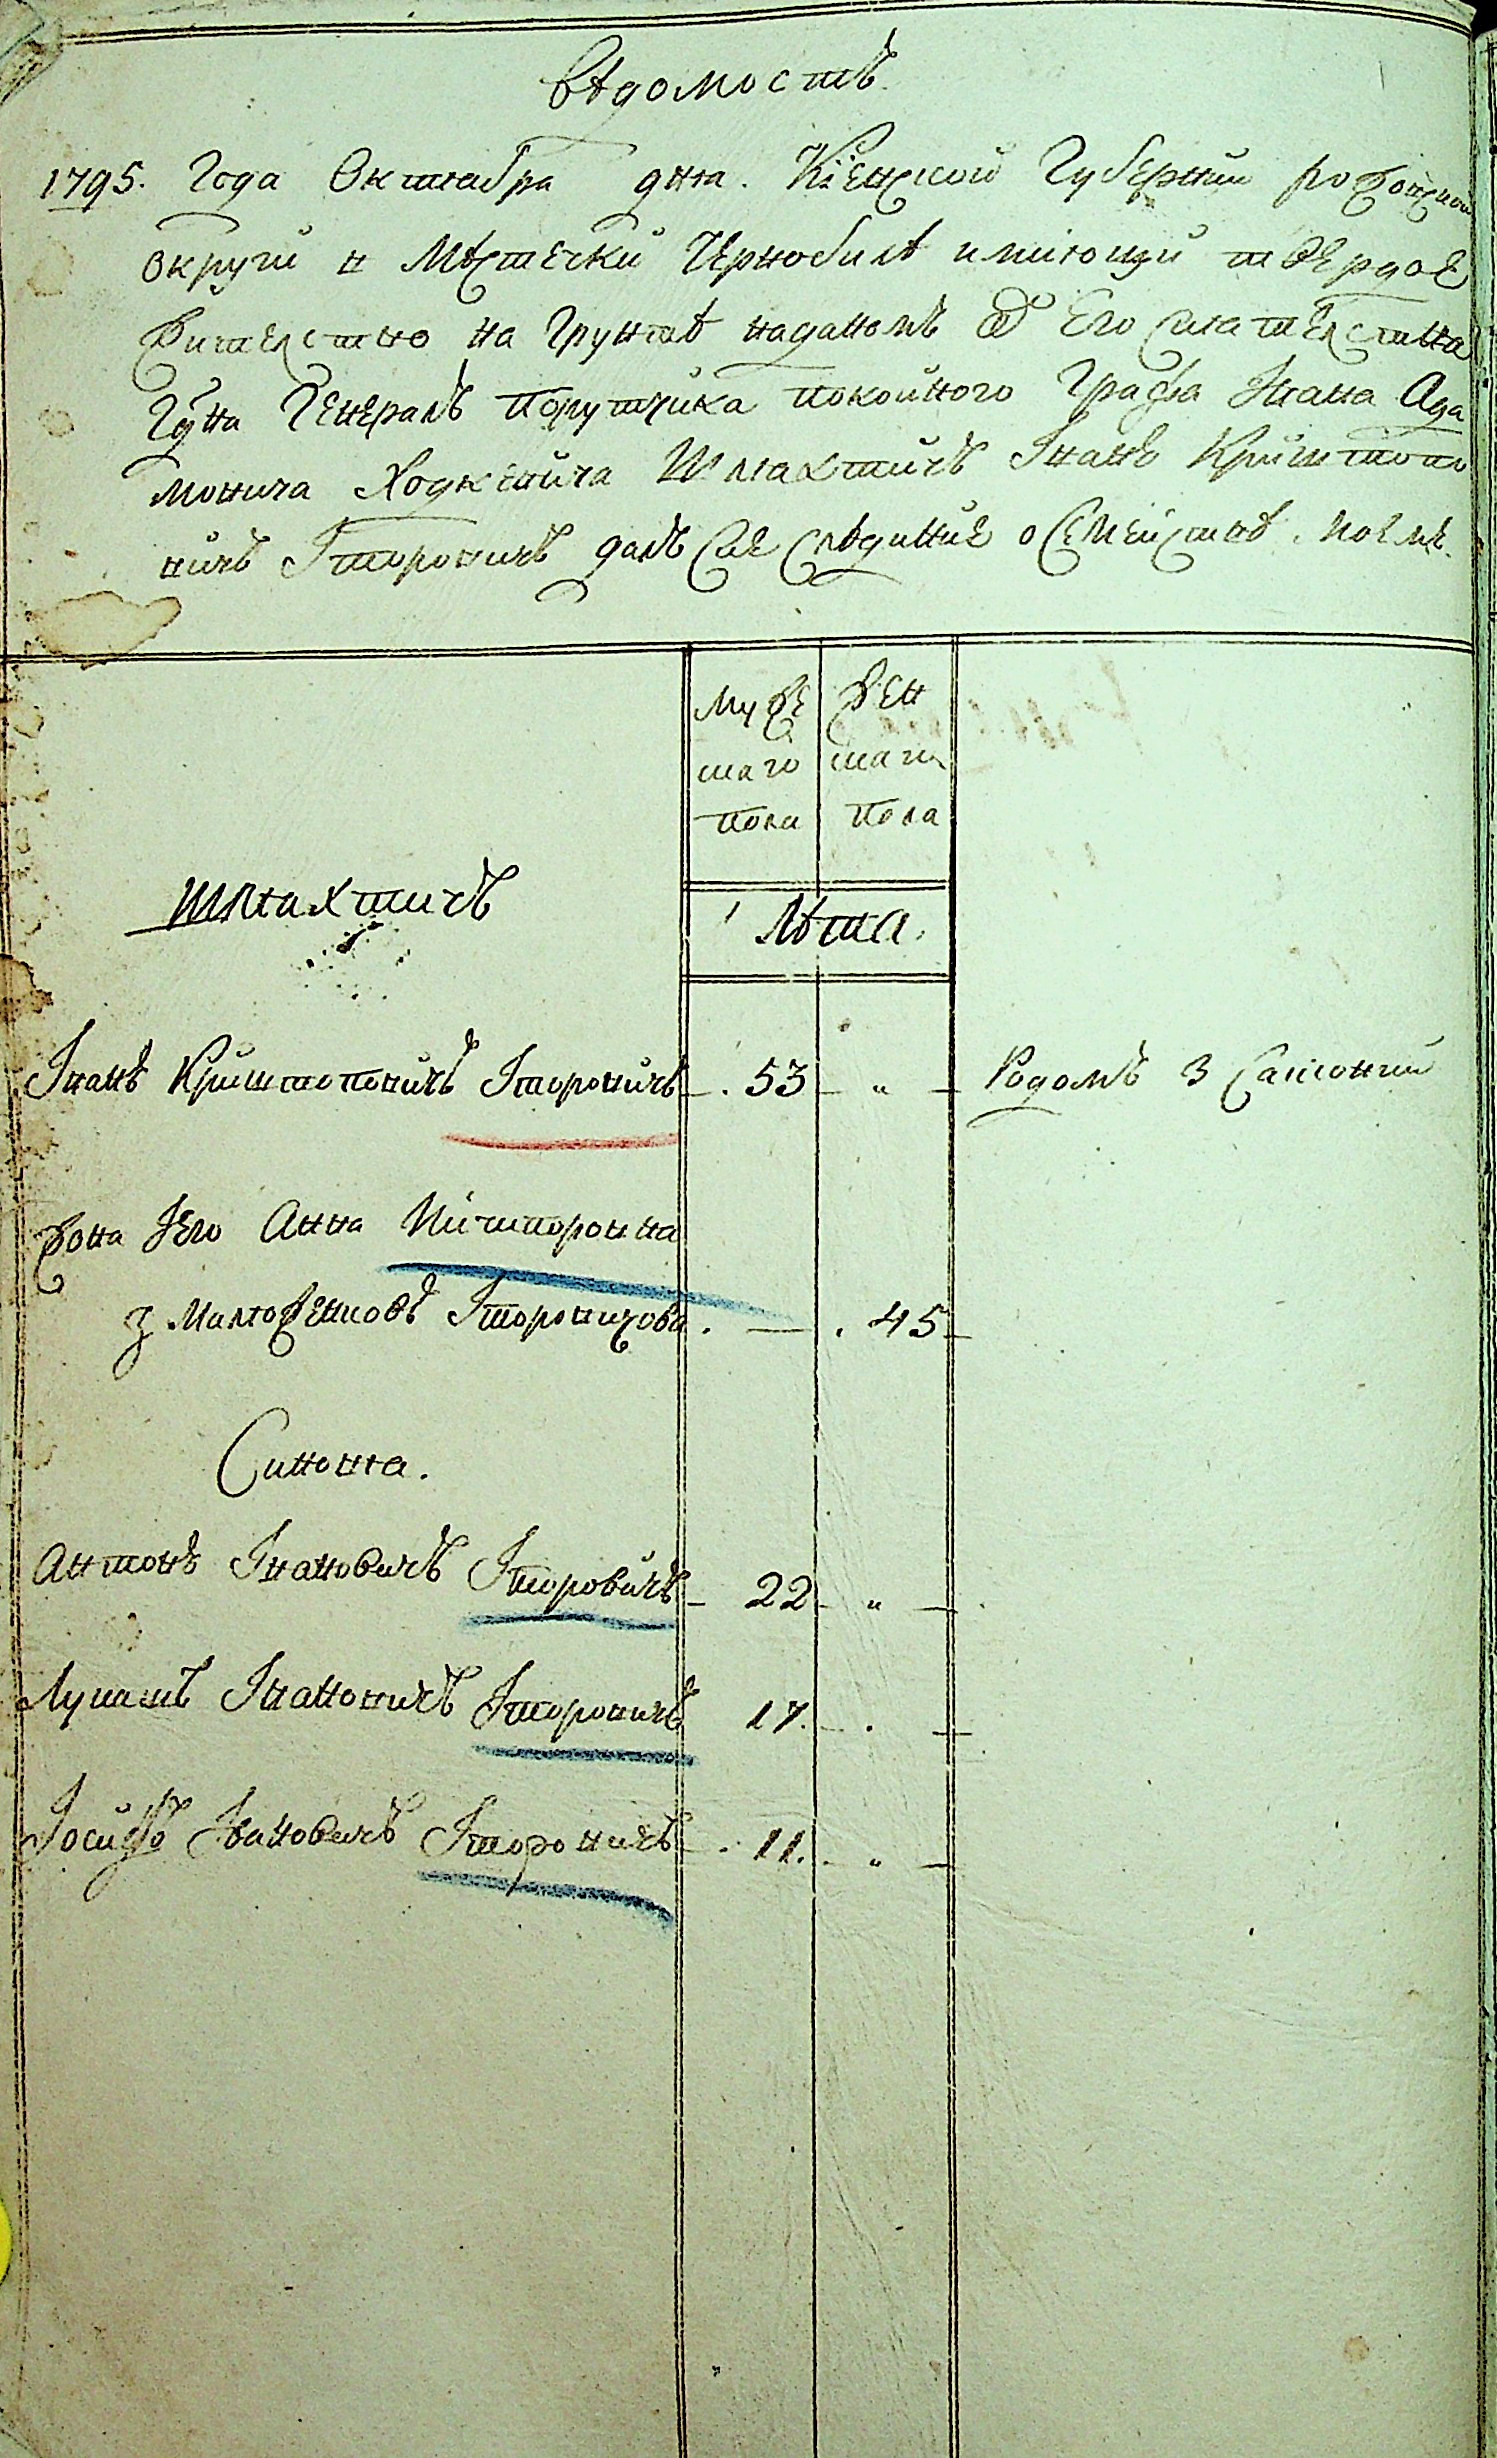 Вѣдомость.
1795. Года Октября дня. Кіевской Губерніи
округи в Мѣстечки Чернобилѣ имѣющи твердое
жителство на Грунтѣ наданомъ от Его сиятелства
Генералъ порутчика покойного Графа Ивана Ада
мовича Ходкевича Шляхтичъ Иванъ Криштопо
вичъ Іторовичъ далъ сие свѣдиние о семействѣ моемъ.
Муже
скаго
пола
Жен
скаго
пола
Шляхтичъ
Лѣта.
Іванъ Криштоповичъ Іторовичъ . 53 " Родомъ з Саксонии
Жона Его Анна
з Іторовичова . — . 45
Синовя.
Антонъ Івановичъ Іторовичъ 22 "
Лукашъ Івановичъ Іторовичъ 17. .
Іосифъ Івановичъ Іторовичъ . 11. "